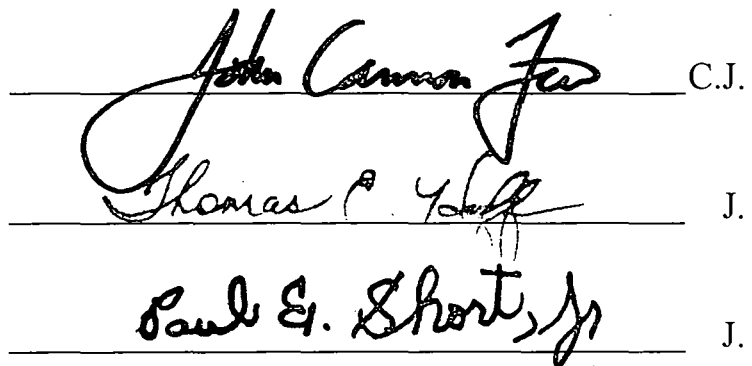 John Cannon Few C.J.
Thomas E. Huff J.
Paul E. Short, Jr J.